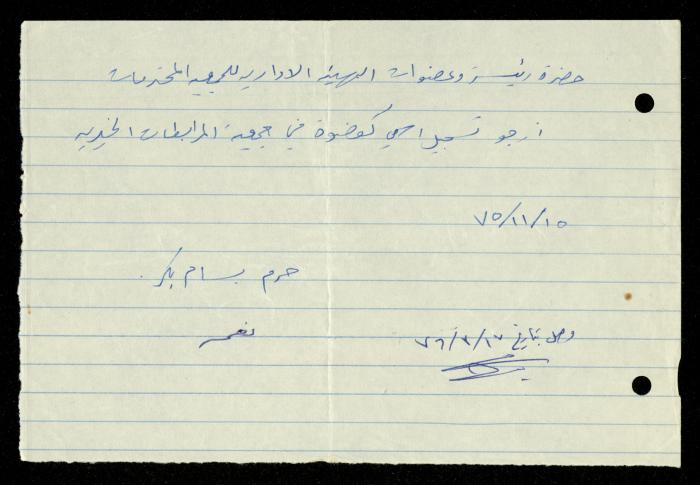 حضرة رئيسة وعضوات الهيئة الادارية للجمعية المحترمات
أرجو تسجيل اسمي كعضوة في جمعية المرابطات الخيرية
٧٥/١١/١٥
حرم بسام بكر.
وصل بتاريخ